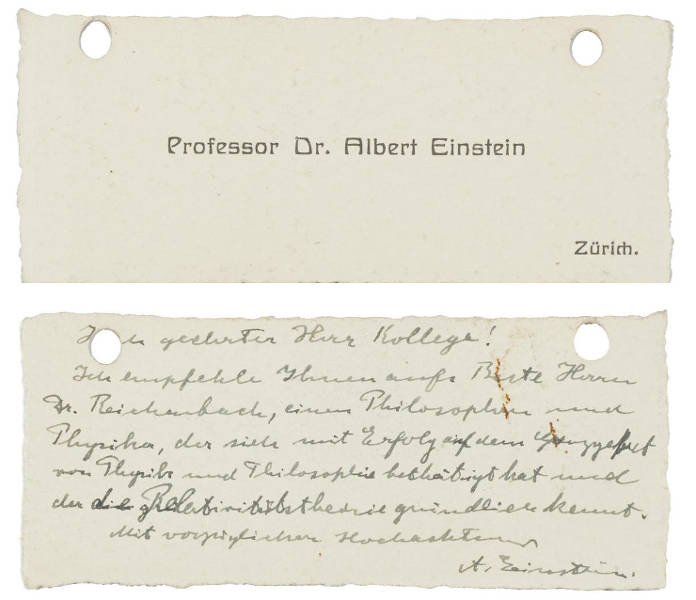 Professor Dr. Albert Einstein
Zürich.
geehrter Herr Kollege!
Ich empfehle Ihnen aufs Beste Herrn
Dr. Reichenbach, einen Philosophen und
Physiker, der sich mit Erfolg auf dem Grenzgebiet
von Physik und Philosophie bethätigt hat und
der die Relativitätstheorie gründlich kennt.
Mit vorzüglicher Hochachtung
A. Einstein.